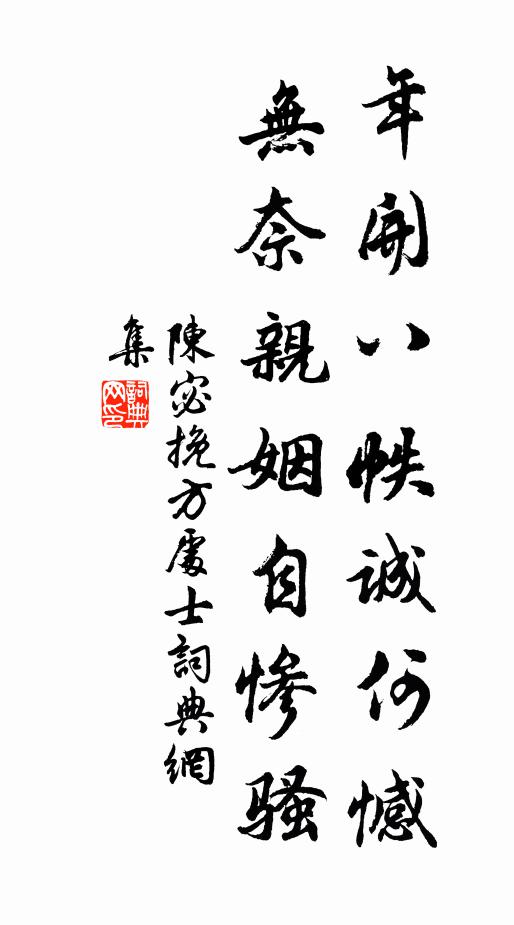 年開八帙誠何憾
無奈親姻自慘騷
陳宓挽方處士詞典網
集
詞典網印